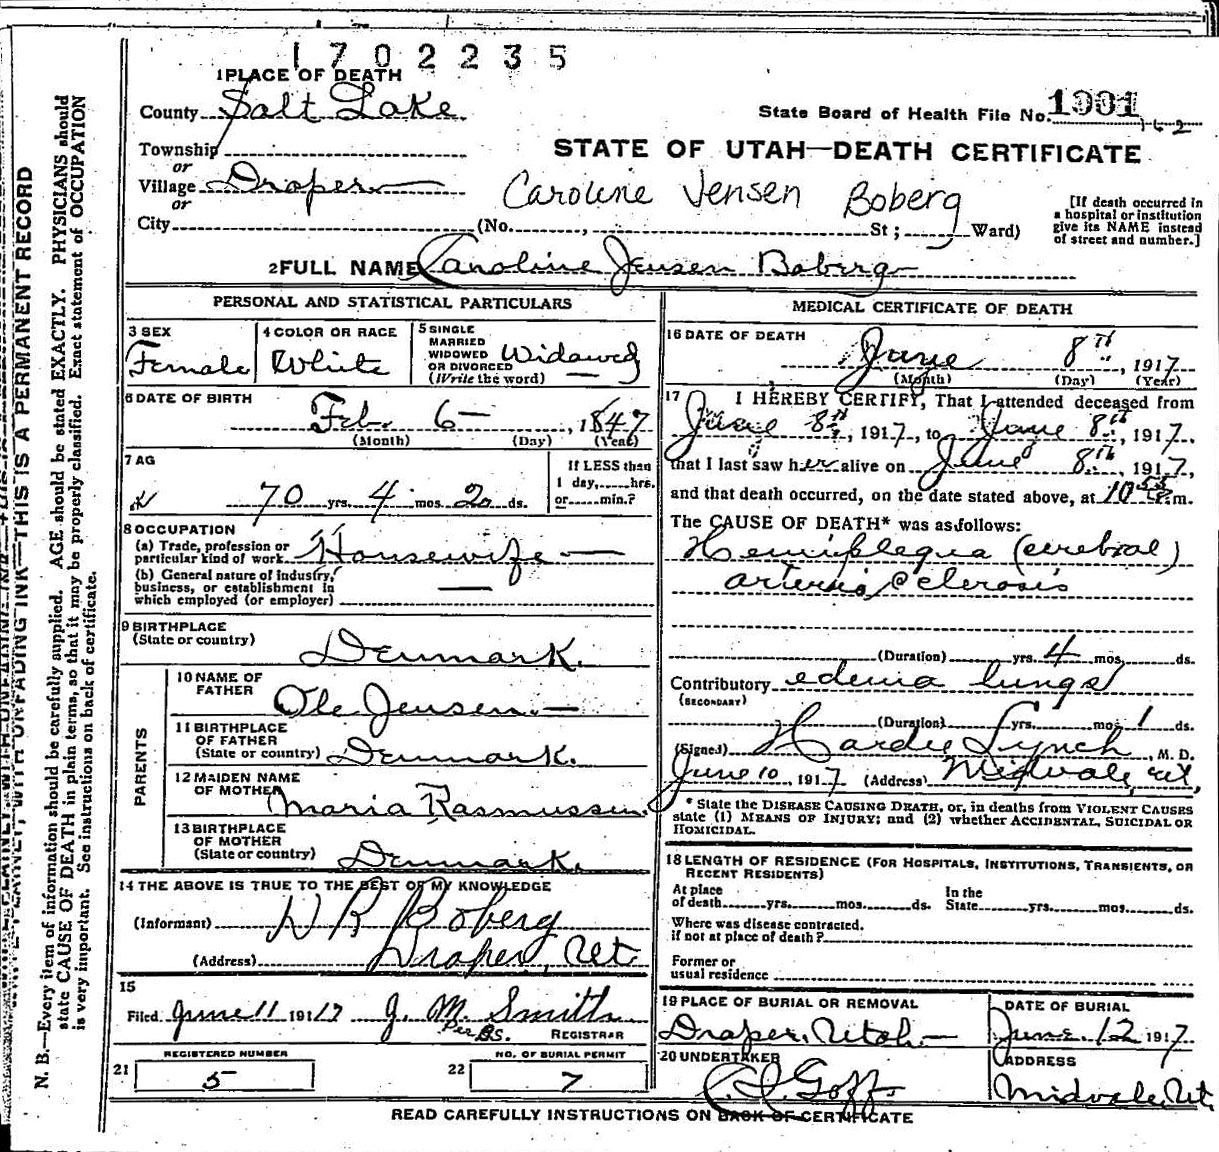 1702235
1 PLACE OF DEATH
County Salt Lake
State Board of Health File No. 1901
162
Township
or
STATE OF UTAH—DEATH CERTIFICATE
Village Draper
or
Caroline Jensen Boberg
City (No. , St; Ward)
[If death occurred in
a hospital or institution
give its NAME instead
of street and number.]
2 FULL NAME Caroline Jensen Boberg
PERSONAL AND STATISTICAL PARTICULARS
3 SEX
Female
4 COLOR OR RACE
White
5 SINGLE
MARRIED
WIDOWED
OR DIVORCED
(Write the word)
Widowed
6 DATE OF BIRTH
Feb. 6 , 1847
(Month) (Day) (Year)
7 AG
70 yrs. 4 mos. 2 ds.
If LESS than
1 day, hrs.
or min.?
8 OCCUPATION
(a) Trade, profession or
particular kind of work Housewife
(b) General nature of industry,
business, or establishment in
which employed (or employer)
9 BIRTHPLACE
(State or country)
Denmark.
PARENTS
10 NAME OF
FATHER
Ole Jensen.
11 BIRTHPLACE
OF FATHER
(State or country) Denmark.
12 MAIDEN NAME
OF MOTHER
Maria Rasmussen
13 BIRTHPLACE
OF MOTHER
(State or country) Denmark.
14 THE ABOVE IS TRUE TO THE BEST OF MY KNOWLEDGE
(Informant) Boberg
(Address) Draper, Ut
15
Filed June 11 1917 J. M. Smith
Per BS. REGISTRAR
21 REGISTERED NUMBER
5
22 NO. OF BURIAL PERMIT
7
MEDICAL CERTIFICATE OF DEATH
16 DATE OF DEATH
June 8th, 1917
(Month) (Day) (Year)
17 I HEREBY CERTIFY, That I attended deceased from
June 8th, 1917, to June 8th, 1917,
that I last saw her alive on June 8th, 1917,
and that death occurred, on the date stated above, at 10 m.
The CAUSE OF DEATH* was as follows:
Hemiplegia (cerebral)
arterio sclerosis
(Duration) yrs. 4 mos. ds.
Contributory edema lungs
(SECONDARY)
(Duration) yrs. mos. 1 ds.
(Signed) Hardie Lynch, M. D.
June 10, 1917 (Address) Midvale, Ut,
* State the DISEASE CAUSING DEATH, or, in deaths from VIOLENT CAUSES
state (1) MEANS OF INJURY; and (2) whether ACCIDENTAL, SUICIDAL OR
HOMICIDAL.
18 LENGTH OF RESIDENCE (FOR HOSPITALS, INSTITUTIONS, TRANSIENTS, OR
RECENT RESIDENTS)
At place
of death yrs. mos. ds.
In the
State yrs. mos. ds.
Where was disease contracted,
if not at place of death?
Former or
usual residence
19 PLACE OF BURIAL OR REMOVAL
Draper, Utah
DATE OF BURIAL
June 12 1917
20 UNDERTAKER
Goff
ADDRESS
Midvale, Ut.
READ CAREFULLY INSTRUCTIONS ON BACK OF CERTIFICATE
WRITE PLAINLY, WITH UNFADING INK—THIS IS A PERMANENT RECORD
N. B.—Every item of information should be carefully supplied. AGE should be stated EXACTLY. PHYSICIANS should
state CAUSE OF DEATH in plain terms, so that it may be properly classified. Exact statement of OCCUPATION
is very important. See instructions on back of certificate.